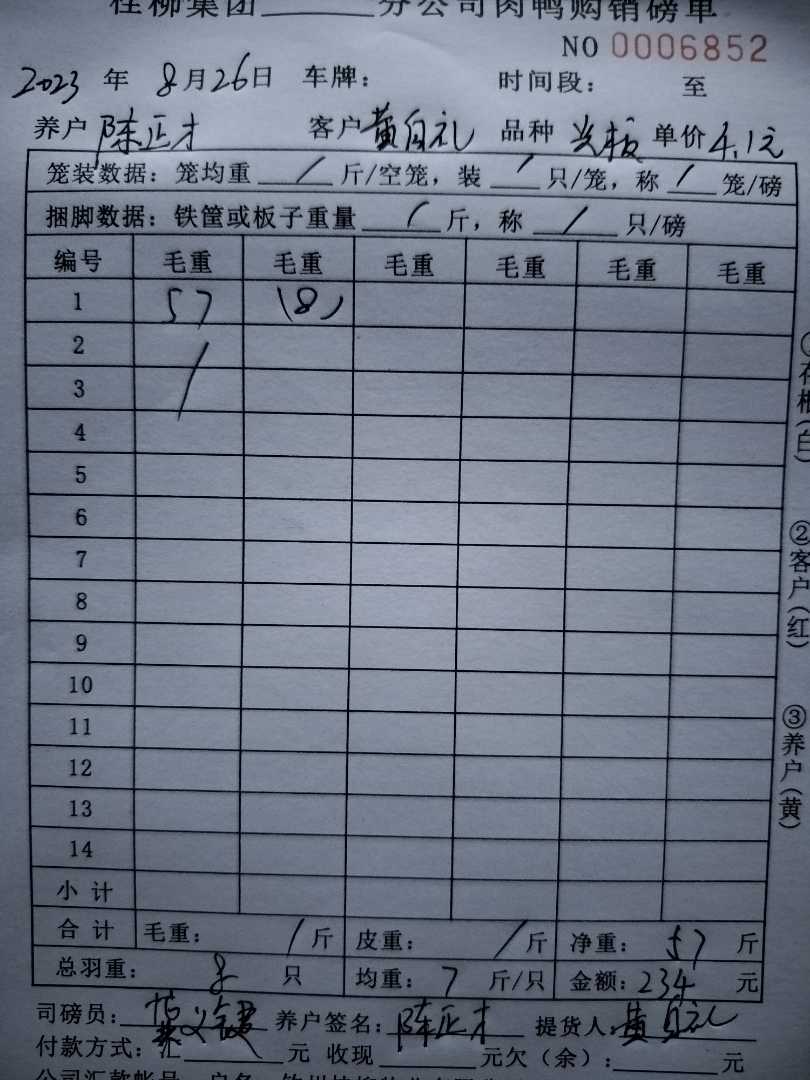 桂柳集团______分公司肉鸭购销磅单
NO 0006852
2023 年 8月26日 车牌： 时间段： 至
养户 陈正才 客户 黄自礼 品种 单价 4.1元
笼装数据：笼均重 / 斤/空笼，装 / 只/笼，称 / 笼/磅
捆脚数据：铁筐或板子重量 / 斤，称 / 只/磅
编号 毛重 毛重 毛重 毛重 毛重 毛重
1 57 (8)
2 /
3
4
5
6
7
8
9
10
11
12
13
14
小 计
合 计 毛重： / 斤 皮重： / 斤 净重： 57 斤
总羽重： 8 只 均重： 7 斤/只 金额：234 元
司磅员： 养户签名：陈正才 提货人：黄自礼
付款方式：汇______元 收现______元欠（余）：______元
公司汇款帐号 户名
②客户(红)
③养户(黄)